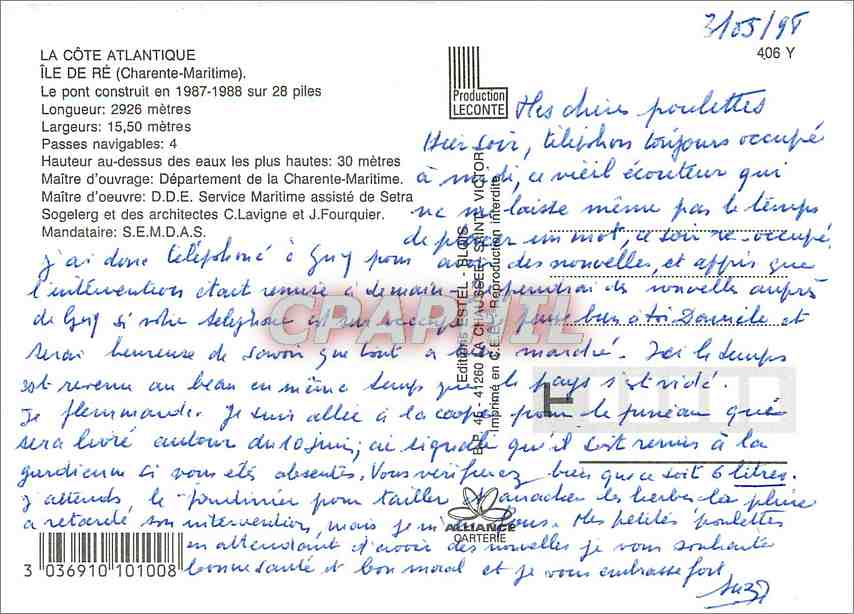 3/05/98
LA CÔTE ATLANTIQUE
ÎLE DE RÉ (Charente-Maritime).
Le pont construit en 1987-1988 sur 28 piles
Longueur: 2926 mètres
Largeurs: 15,50 mètres
Passes navigables: 4
Hauteur au-dessus des eaux les plus hautes: 30 mètres
Maître d'ouvrage: Département de la Charente-Maritime.
Maître d'oeuvre: D.D.E. Service Maritime assisté de Setra
Sogelerg et des architectes C.Lavigne et J.Fourquier.
Mandataire: S.E.M.D.A.S.
Production
LECONTE
406 Y
Mes chères poulettes
Hier soir, téléphone toujours occupé
à midi, ce vieil écouteur qui
ne me laisse même pas le temps
de placer un mot, ce soir re-occupé.
J'ai donc téléphoné à Guy pour avoir des nouvelles, et appris que
l'intervention était remise à demain. prendrai des nouvelles auprès
de Guy si votre téléphone est occupé. Je pense bien à toi Danièle et
serai heureuse de savoir que tout a bien marché. Ici le temps
est revenu au beau en même temps que le pays s'est vidé.
Je flemmarde. Je suis allée à la coopé pour le pineau qui
sera livré autour du 10 juin; ai signalé qu'il soit remis à la
gardienne si vous êtes absentes. Vous vérifierez bien que ce soit 6 litres.
J'attends le jardinier pour tailler et arracher les herbes. La pluie
a retardé son intervention, mais je m'en fous. Mes petites poulettes
en attendant d'avoir des nouvelles je vous souhaite
bonne santé et bon moral et je vous embrasse fort
Suzy
Editions VESTEL - BLOIS
B.P. 45 - 41260 LA CHAUSSÉE SAINT VICTOR
Imprimé en C.E.E. - Reproduction interdite
CPARAMIL
ALLIANCE
CARTERIE
3 036910 101008